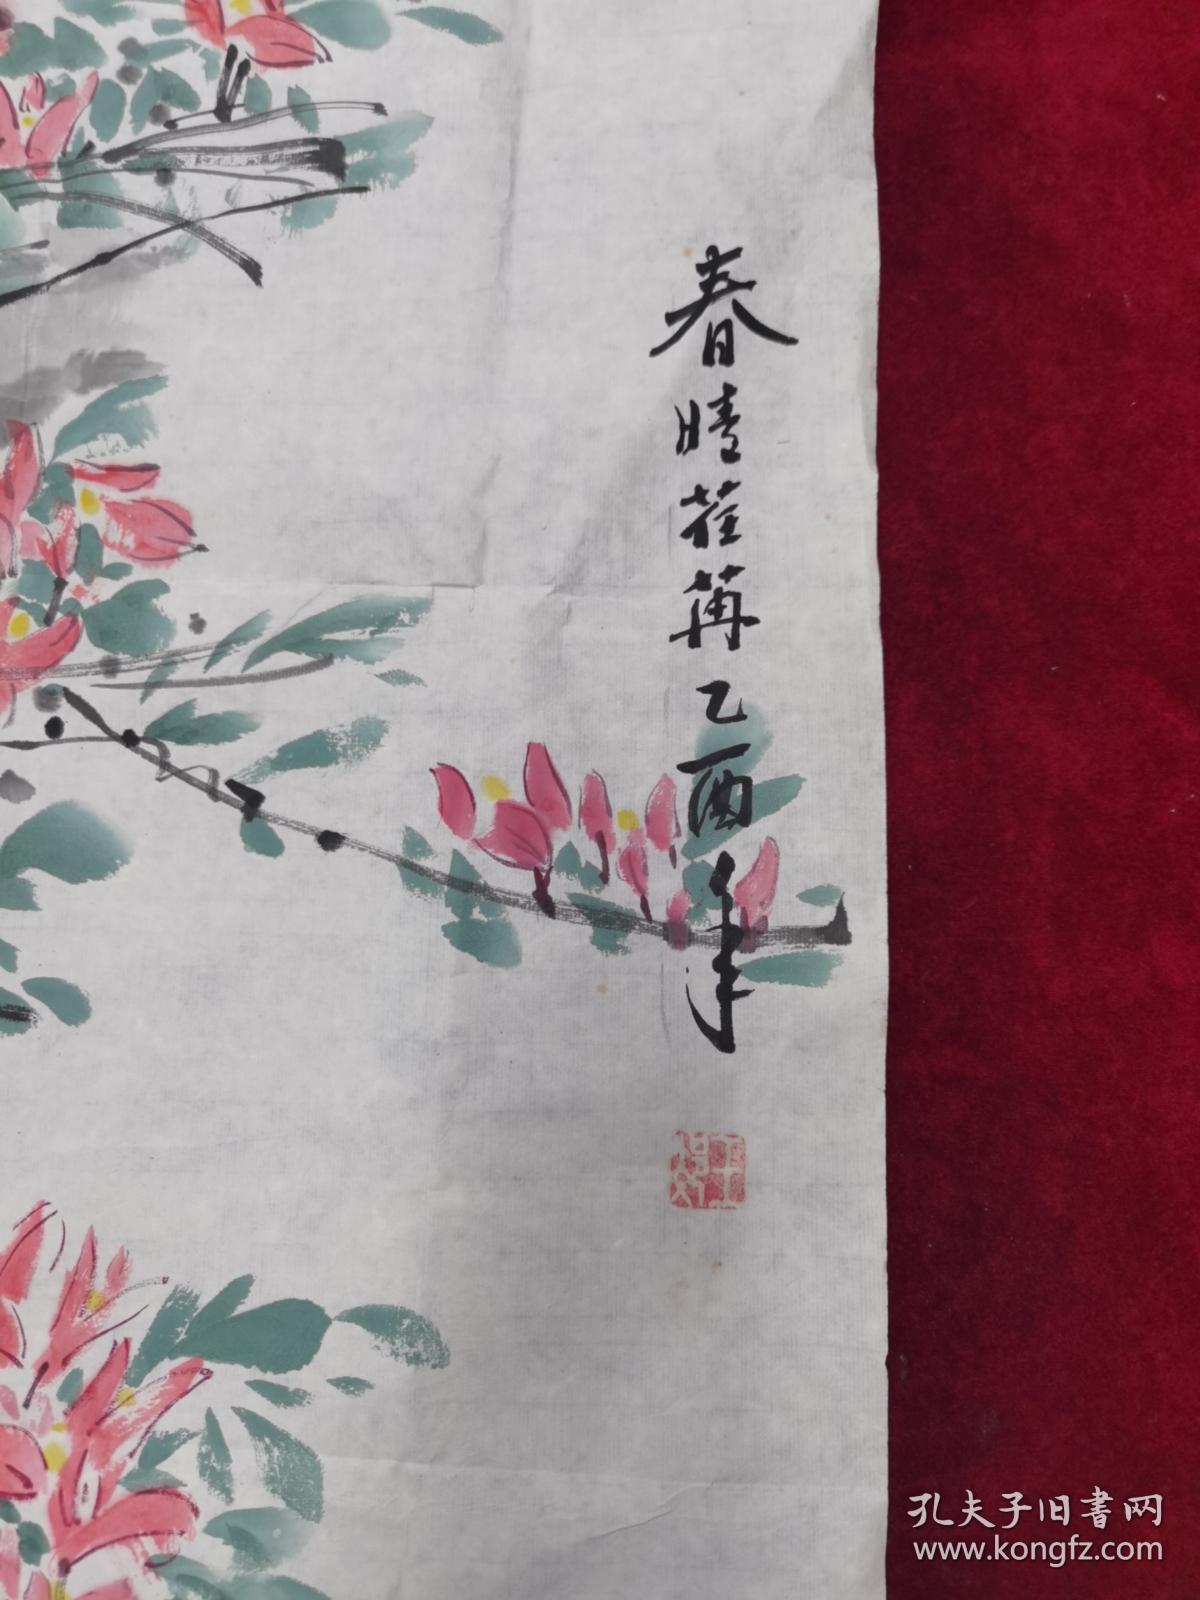 春晴荏苒乙酉年
孔夫子旧書网
www.kongfz.com